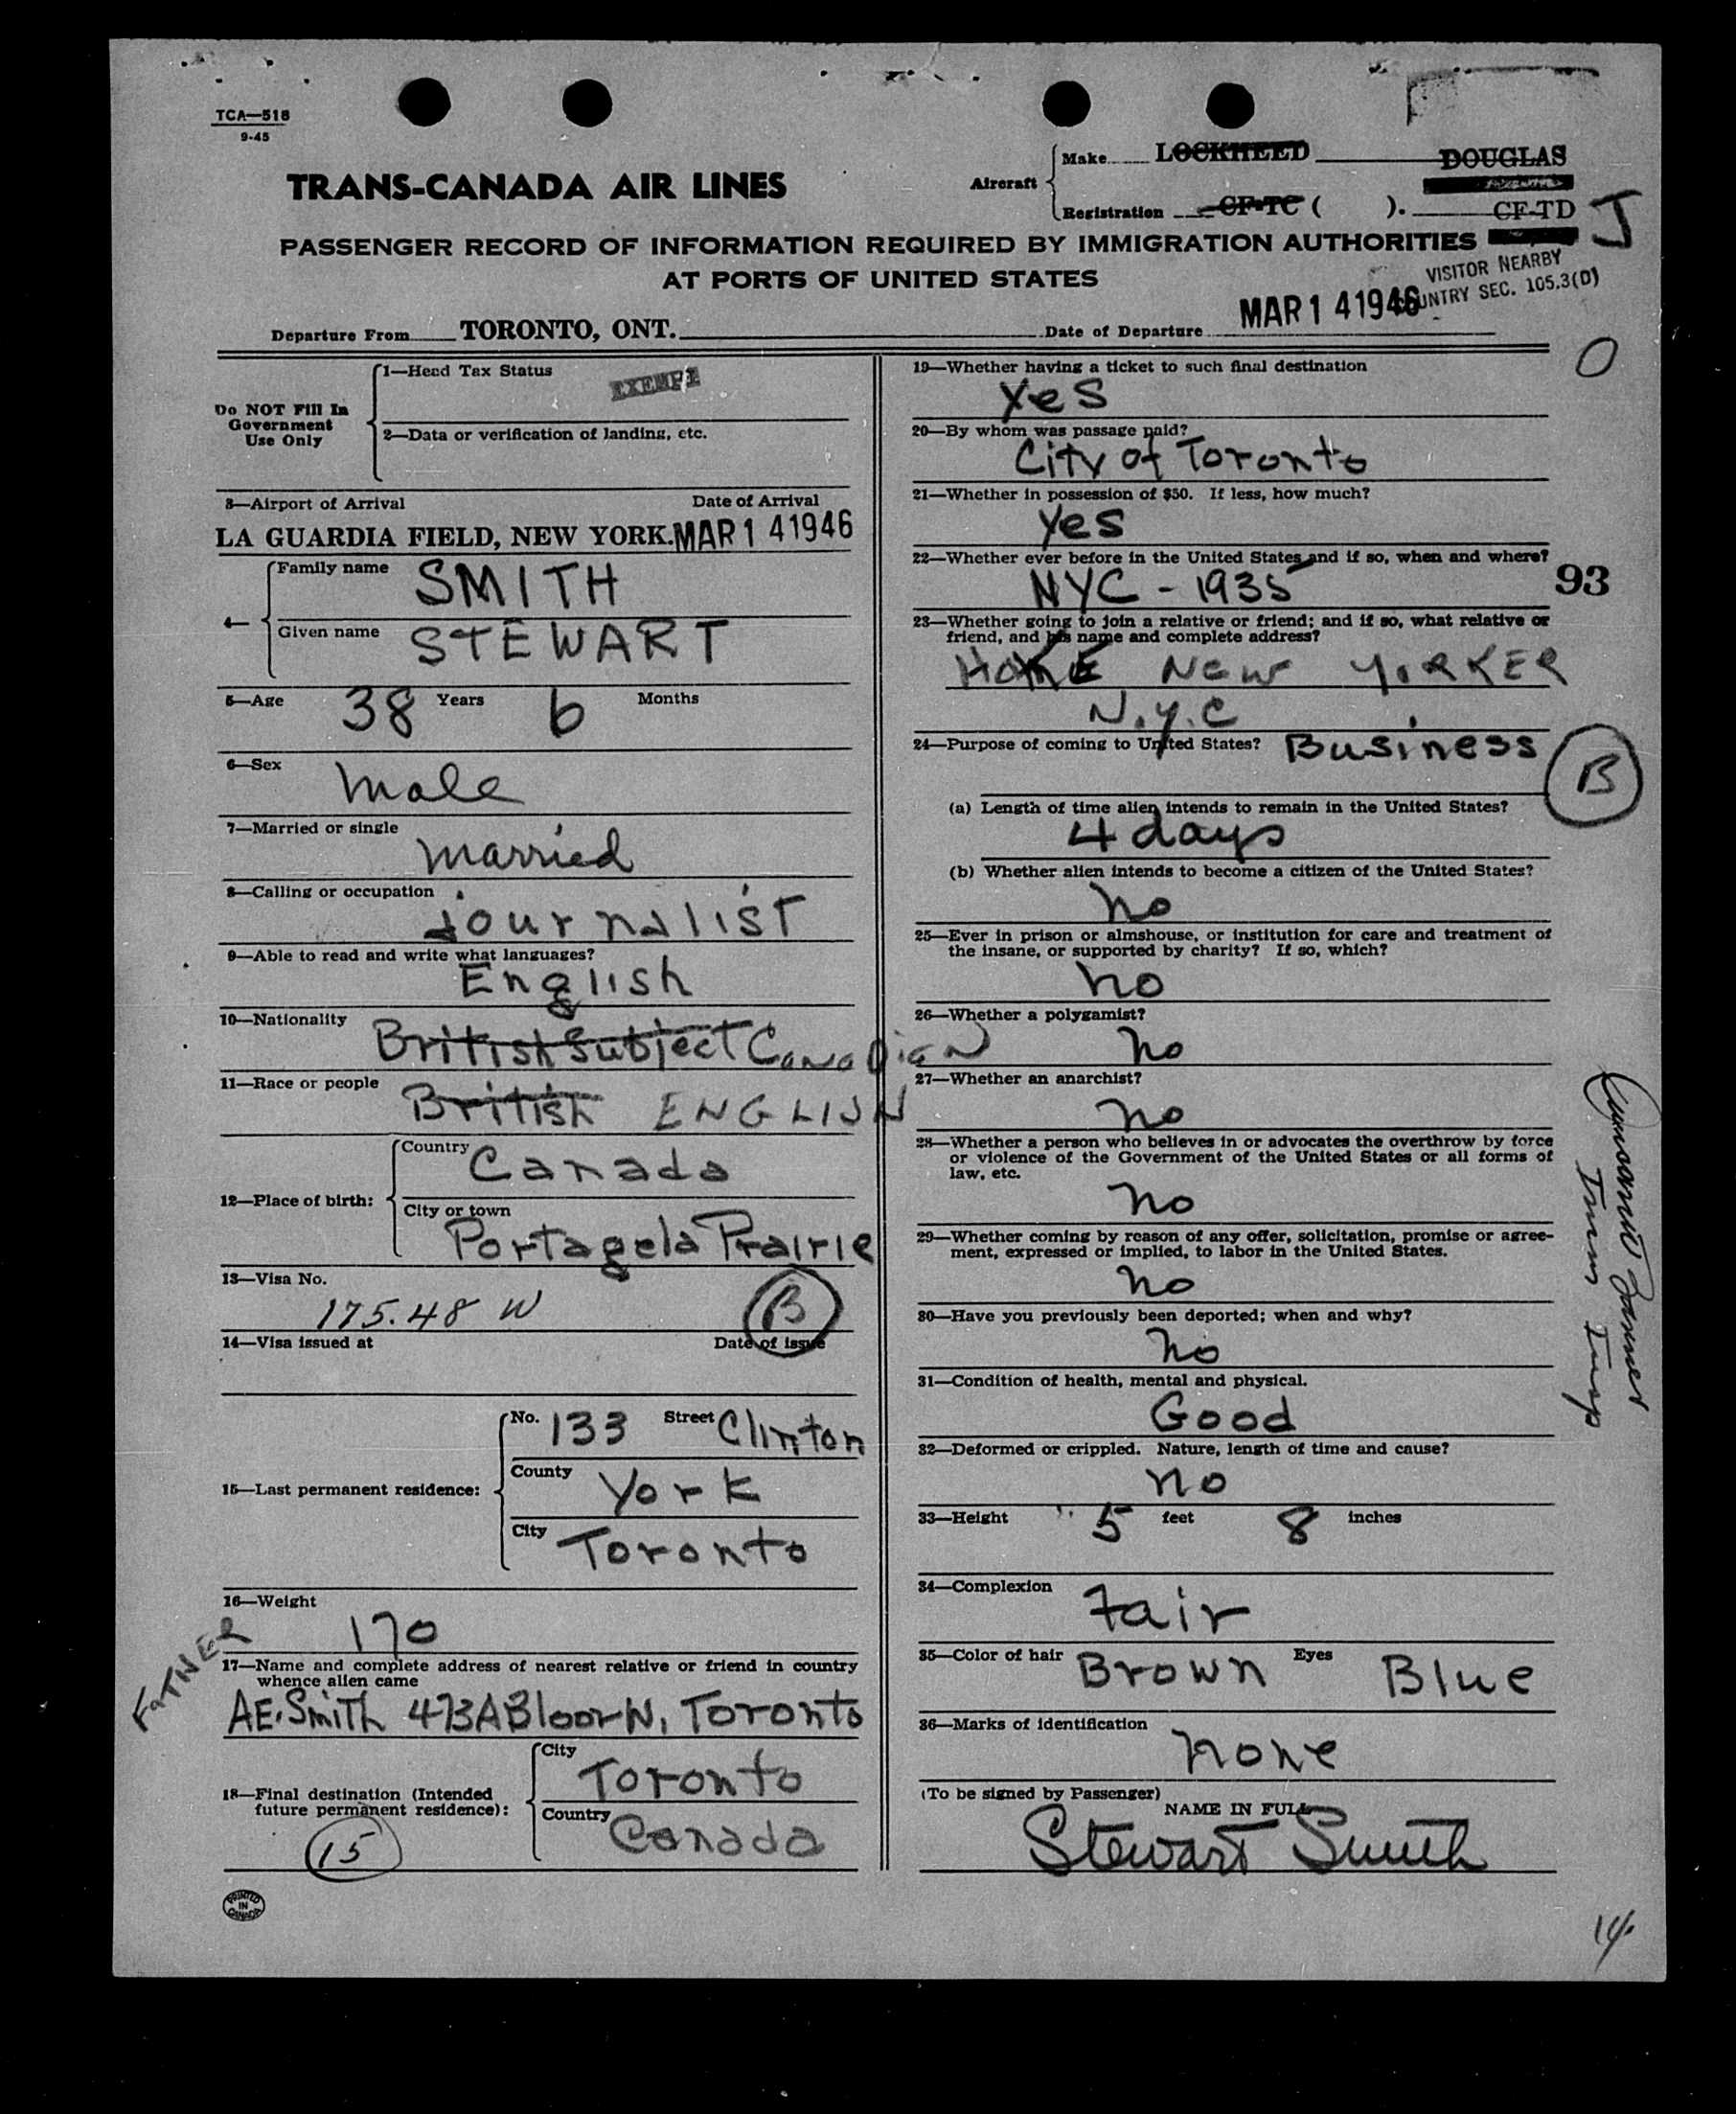 TCA—518
9-45
TRANS-CANADA AIR LINES
Aircraft
Make LOCKHEED DOUGLAS
Registration CF-TC ( ). CF-TD J
PASSENGER RECORD OF INFORMATION REQUIRED BY IMMIGRATION AUTHORITIES
AT PORTS OF UNITED STATES
VISITOR NEARBY
COUNTRY SEC. 105.3(D)
Departure From TORONTO, ONT. Date of Departure MAR 14 1946
Do NOT Fill In
Government
Use Only
1—Head Tax Status EXEMPT
2—Data or verification of landing, etc.
3—Airport of Arrival Date of Arrival
LA GUARDIA FIELD, NEW YORK. MAR 14 1946
4—
Family name SMITH
Given name STEWART
5—Age 38 Years 6 Months
6—Sex Male
7—Married or single
Married
8—Calling or occupation
journalist
9—Able to read and write what languages?
English
10—Nationality
British Subject Canadian
11—Race or people
British ENGLISH
12—Place of birth:
Country Canada
City or town
Portage la Prairie
13—Visa No.
175.48 W B
14—Visa issued at Date of issue
15—Last permanent residence:
No. 133 Street Clinton
County York
City Toronto
16—Weight
170
FATHER
17—Name and complete address of nearest relative or friend in country
whence alien came
A E. Smith 473A Bloor W, Toronto
18—Final destination (Intended
future permanent residence):
City Toronto
Country Canada
15
PRINTED
IN
CANADA
19—Whether having a ticket to such final destination
Yes
O
20—By whom was passage paid?
City of Toronto
21—Whether in possession of $50. If less, how much?
Yes
22—Whether ever before in the United States and if so, when and where?
NYC - 1935
93
23—Whether going to join a relative or friend; and if so, what relative or
friend, and his name and complete address?
NEW YORKER
N.Y.C
24—Purpose of coming to United States? Business
B
(a) Length of time alien intends to remain in the United States?
4 days
(b) Whether alien intends to become a citizen of the United States?
no
25—Ever in prison or almshouse, or institution for care and treatment of
the insane, or supported by charity? If so, which?
no
26—Whether a polygamist?
no
27—Whether an anarchist?
no
28—Whether a person who believes in or advocates the overthrow by force
or violence of the Government of the United States or all forms of
law, etc.
no
29—Whether coming by reason of any offer, solicitation, promise or agree-
ment, expressed or implied, to labor in the United States.
no
30—Have you previously been deported; when and why?
no
31—Condition of health, mental and physical.
Good
32—Deformed or crippled. Nature, length of time and cause?
no
33—Height 5 feet 8 inches
34—Complexion
Fair
35—Color of hair Brown Eyes Blue
36—Marks of identification
none
(To be signed by Passenger)
NAME IN FULL
Stewart Smith
Imm Insp
14